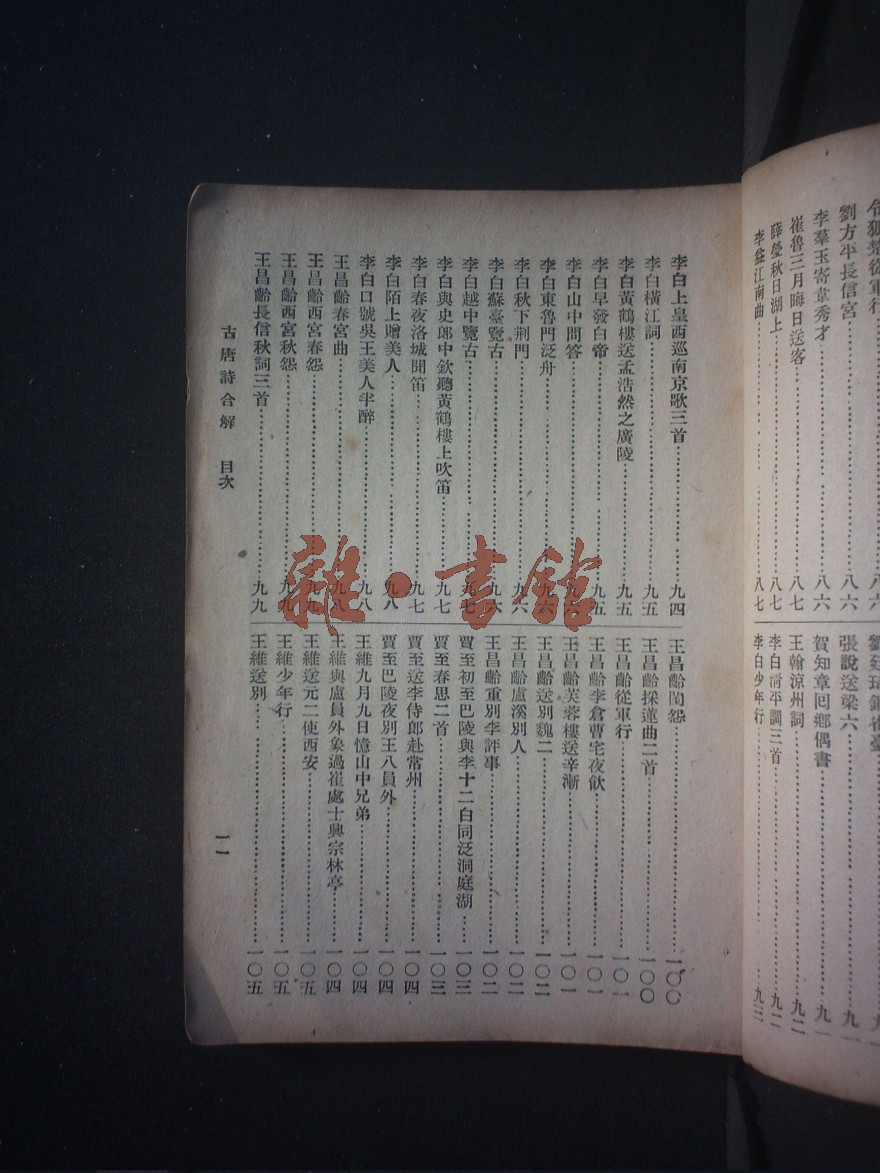 令狐楚從軍行……八六
劉方平長信宮……八六
李羣玉寄韋秀才……八六
崔魯三月晦日送客……八七
薛瑩秋日湖上……八七
李益江南曲……八七
劉廷琦銅雀臺
張說送梁六……九一
賀知章回鄉偶書……九一
王翰涼州詞……九二
李白清平調三首……九二
李白少年行……九三
李白上皇西巡南京歌三首……九四
李白橫江詞……九五
李白黃鶴樓送孟浩然之廣陵……九五
李白早發白帝……九五
李白山中問答……
李白東魯門泛舟……九六
李白秋下荊門……九六
李白蘇臺覽古……九六
李白越中覽古……九七
李白與史郎中欽聽黃鶴樓上吹笛……九七
李白春夜洛城聞笛……九七
李白陌上贈美人……九八
李白口號吳王美人半醉……九八
王昌齡春宮曲……九八
王昌齡西宮春怨……九九
王昌齡西宮秋怨……九九
王昌齡長信秋詞三首……九九
王昌齡閨怨……一〇〇
王昌齡採蓮曲二首……一〇〇
王昌齡從軍行……一〇一
王昌齡李倉曹宅夜飲……一〇一
王昌齡芙蓉樓送辛漸……一〇一
王昌齡送別魏二……一〇二
王昌齡盧溪別人……一〇二
王昌齡重別李評事……一〇二
賈至初至巴陵與李十二白同泛洞庭湖……一〇三
賈至春思二首……一〇三
賈至送李侍郎赴常州……一〇四
賈至巴陵夜別王八員外……一〇四
王維九月九日憶山中兄弟……一〇四
王維與盧員外象過崔處士興宗林亭……一〇四
王維送元二使西安……一〇五
王維少年行……一〇五
王維送別……一〇五
古唐詩合解 目次
一一
雜·書館